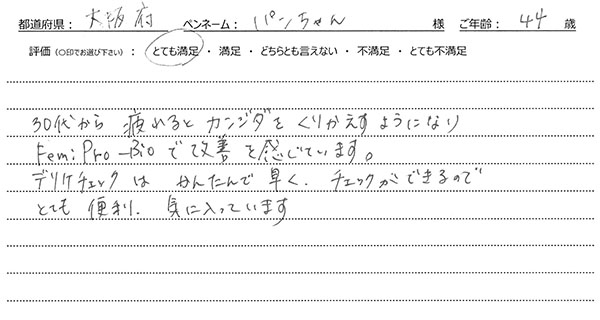 都道府県： 大阪府 ペンネーム： パンちゃん 様 ご年齢： 44 歳
評価（○印でお選び下さい）： とても満足 ・ 満足 ・ どちらとも言えない ・ 不満足 ・ とても不満足
30代から 疲れると カンジダを くりかえすようになり
Femi Pro-Bioで改善を感じています。
デリケチェックは かんたんで早く、チェックができるので
とても 便利、 気に入っています